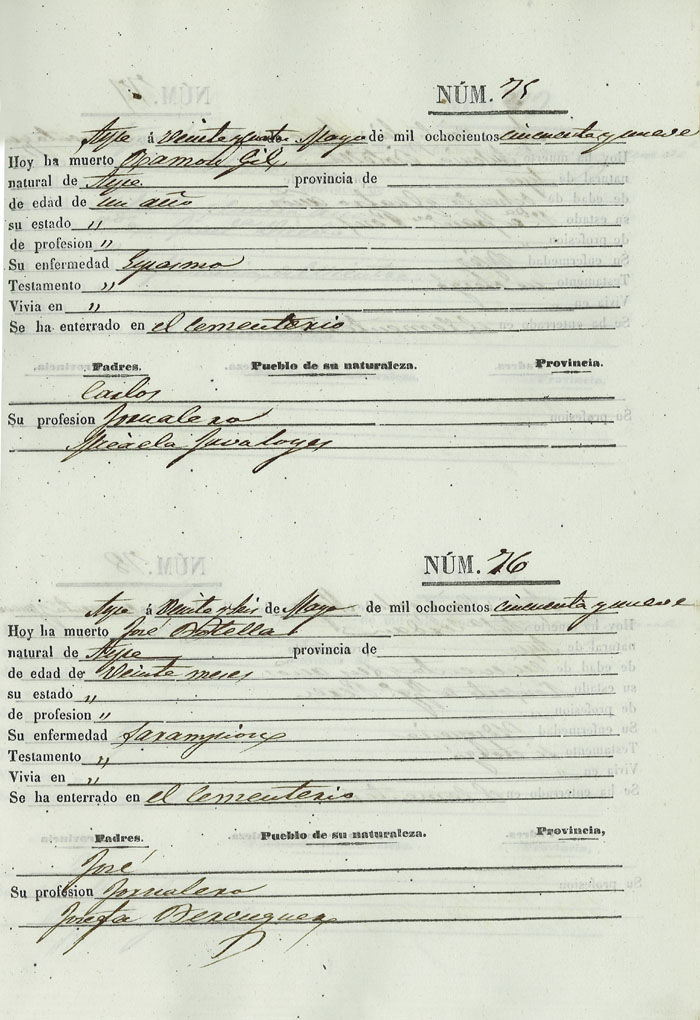 NÚM. 75
Aspe á veinte y cuatro de Mayo de mil ochocientos cincuenta y nueve
Hoy ha muerto Ramon Gil
natural de Aspe provincia de
de edad de un año
su estado "
de profesion "
Su enfermedad Espasmo
Testamento "
Vivia en "
Se ha enterrado en el cementerio
Padres. Pueblo de su naturaleza. Provincia.
Carlos
Su profesion Jornalero
Micaela
NÚM. 76
Aspe á veinte y seis de Mayo de mil ochocientos cincuenta y nueve
Hoy ha muerto José Botella
natural de Aspe provincia de
de edad de veinte meses
su estado "
de profesion "
Su enfermedad Sarampion
Testamento "
Vivia en "
Se ha enterrado en el cementerio
Padres. Pueblo de su naturaleza. Provincia,
José
Su profesion Jornalero
Josefa Berenguer